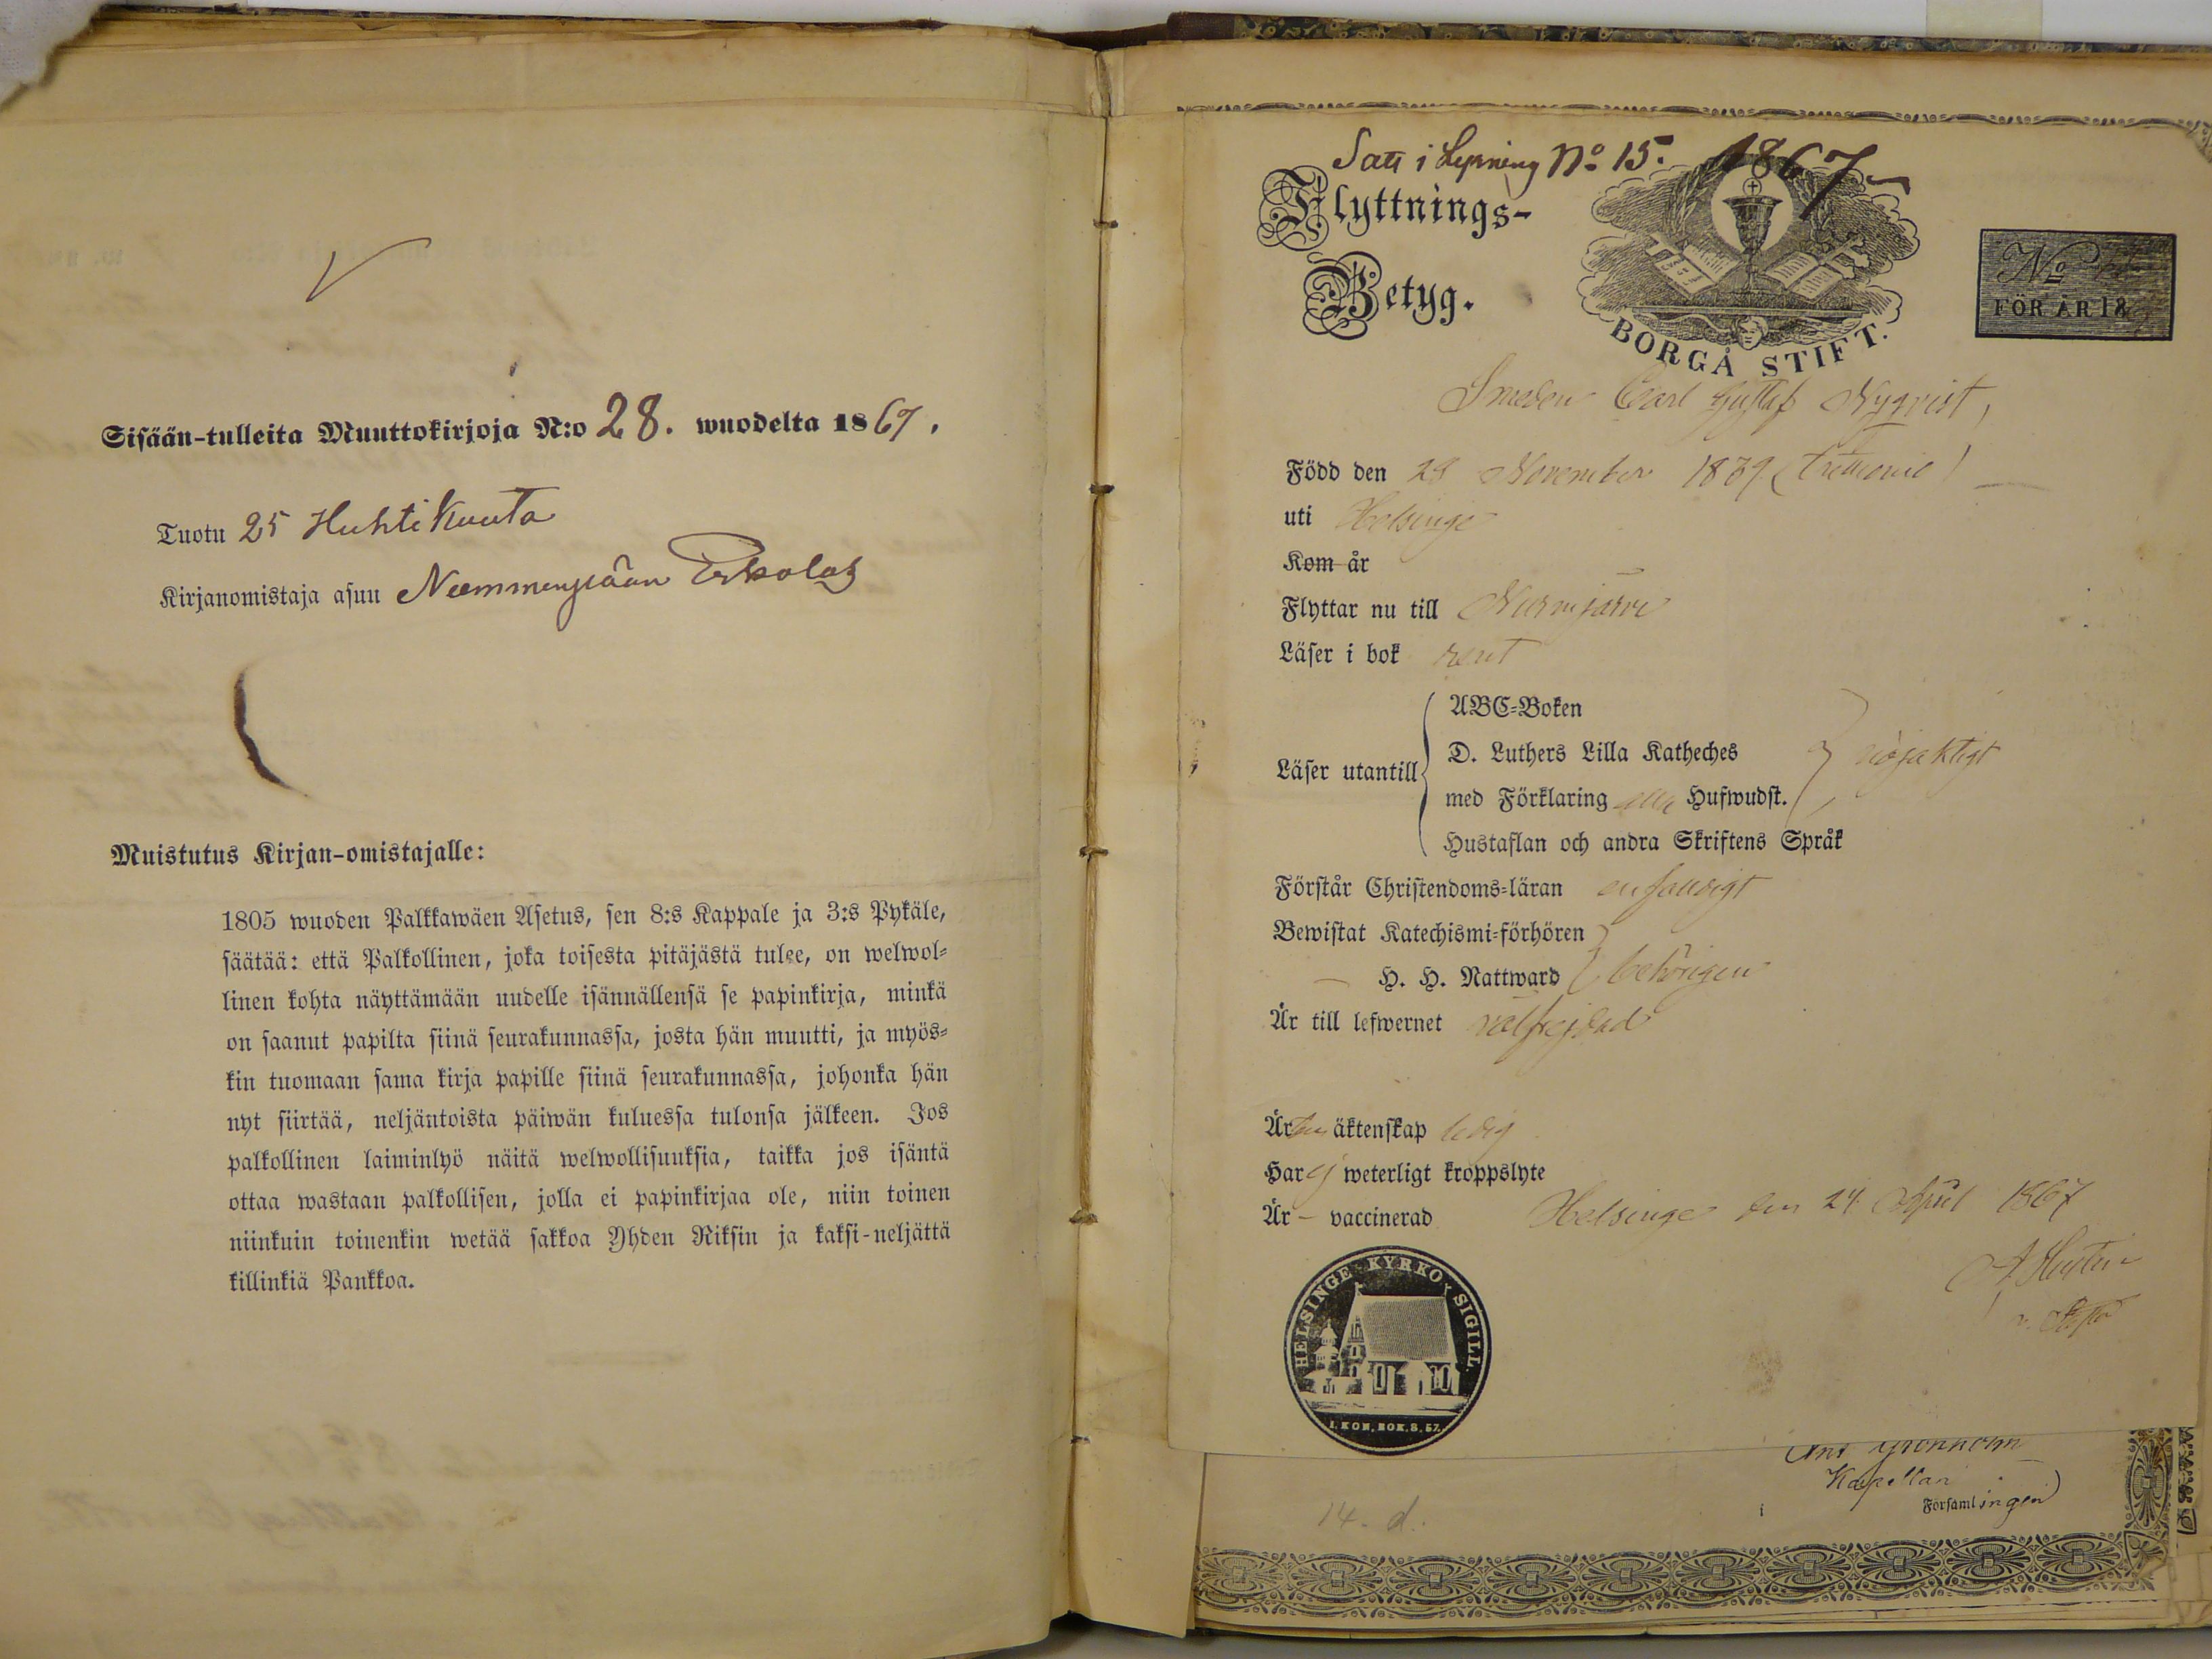 Sisään-tulleita Muuttokirjoja N:o 28. wuodelta 1867.
Tuotu 25 Huhtikuuta
Kirjanomistaja asuu
Muistutus Kirjan-omistajalle:
1805 wuoden Palkkawäen Asetus, sen 8:s Kappale ja 3:s Pykäle,
säätää: että Palkollinen, joka toisesta pitäjästä tulee, on welwol-
linen kohta näyttämään uudelle isännällensä se papinkirja, minkä
on saanut papilta siinä seurakunnassa, josta hän muutti, ja myös-
kin tuomaan sama kirja papille siinä seurakunnassa, johonka hän
nyt siirtää, neljäntoista päiwän kuluessa tulonsa jälkeen. Jos
palkollinen laiminlyö näitä welwollisuuksia, taikka jos isäntä
ottaa wastaan palkollisen, jolla ei papinkirjaa ole, niin toinen
niinkuin toinenkin wetää sakkoa Yhden Riksin ja kaksi-neljättä
killinkiä Pankkoa.
No 15. 1867
Flyttnings-
Betyg.
BORGÅ STIFT.
No
FÖR ÅR 18
Smeden Carl Gustaf Nyqvist,
Född den 28 November 1839 (trettionie)
uti Helsinge
Kom år
Flyttar nu till Nurmijärvi
Läser i bok rent
Läser utantill
ABC-Boken
D. Luthers Lilla Katheches
med Förklaring Hufwudst.
Hustaflan och andra Skriftens Språk
nöjaktigt
Förstår Christendoms-läran enfaldigt
Bewistat Katechismi-förhören
— H. H. Nattward behörigen
Är till lefwernet välfrejdad
Är äktenskap ledig
Har ej weterligt kroppslyte
Är – vaccinerad
Helsinge den 24 April 1867
HELSINGE KYRKO SIGILL.
I. KON. BOK. 8. 57.
Kapellan
i Församlingen
14. d.